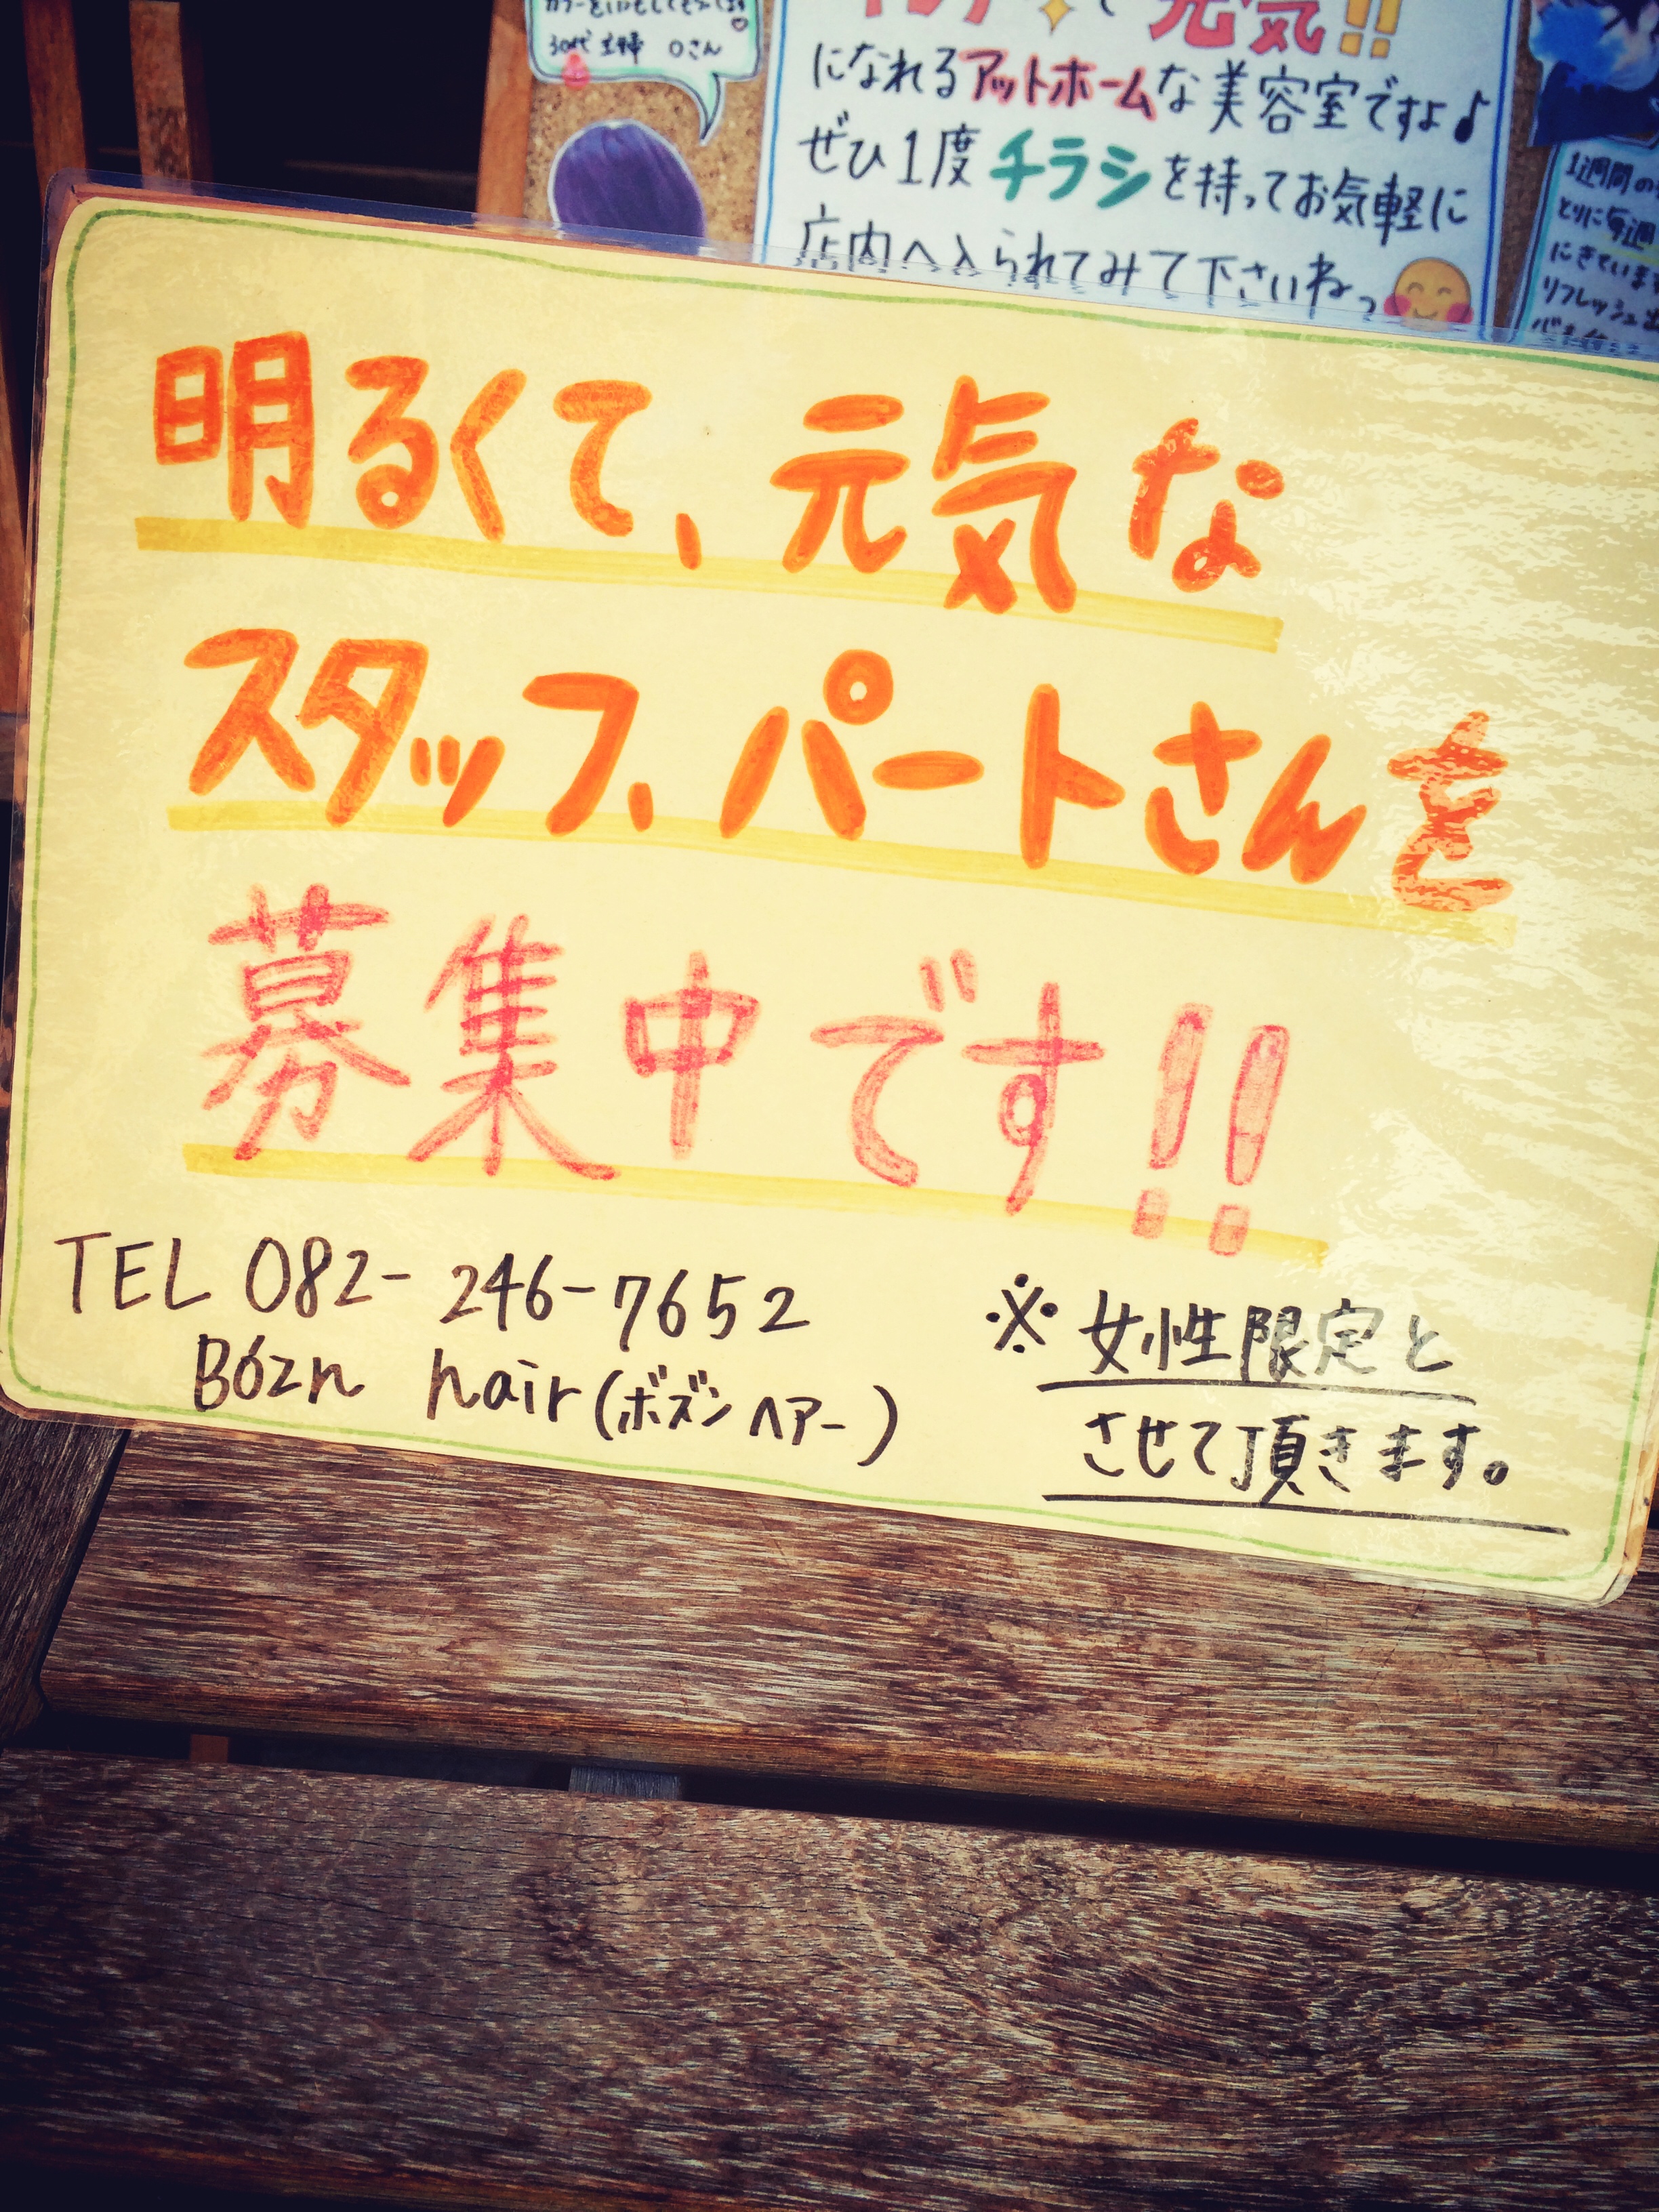 30代 主婦 Oさん
元気!!
になれるアットホームな美容室ですよ♪
ぜひ1度チラシを持ってお気軽に
店内へ入られてみて下さいねっ
1週間の
とりに毎週
にきていま
リフレッシュ
明るくて、元気な
スタッフ、パートさんを
募集中です!!
TEL 082-246-7652
Bózn hair(ボズンヘアー)
※女性限定と
させて頂きます。